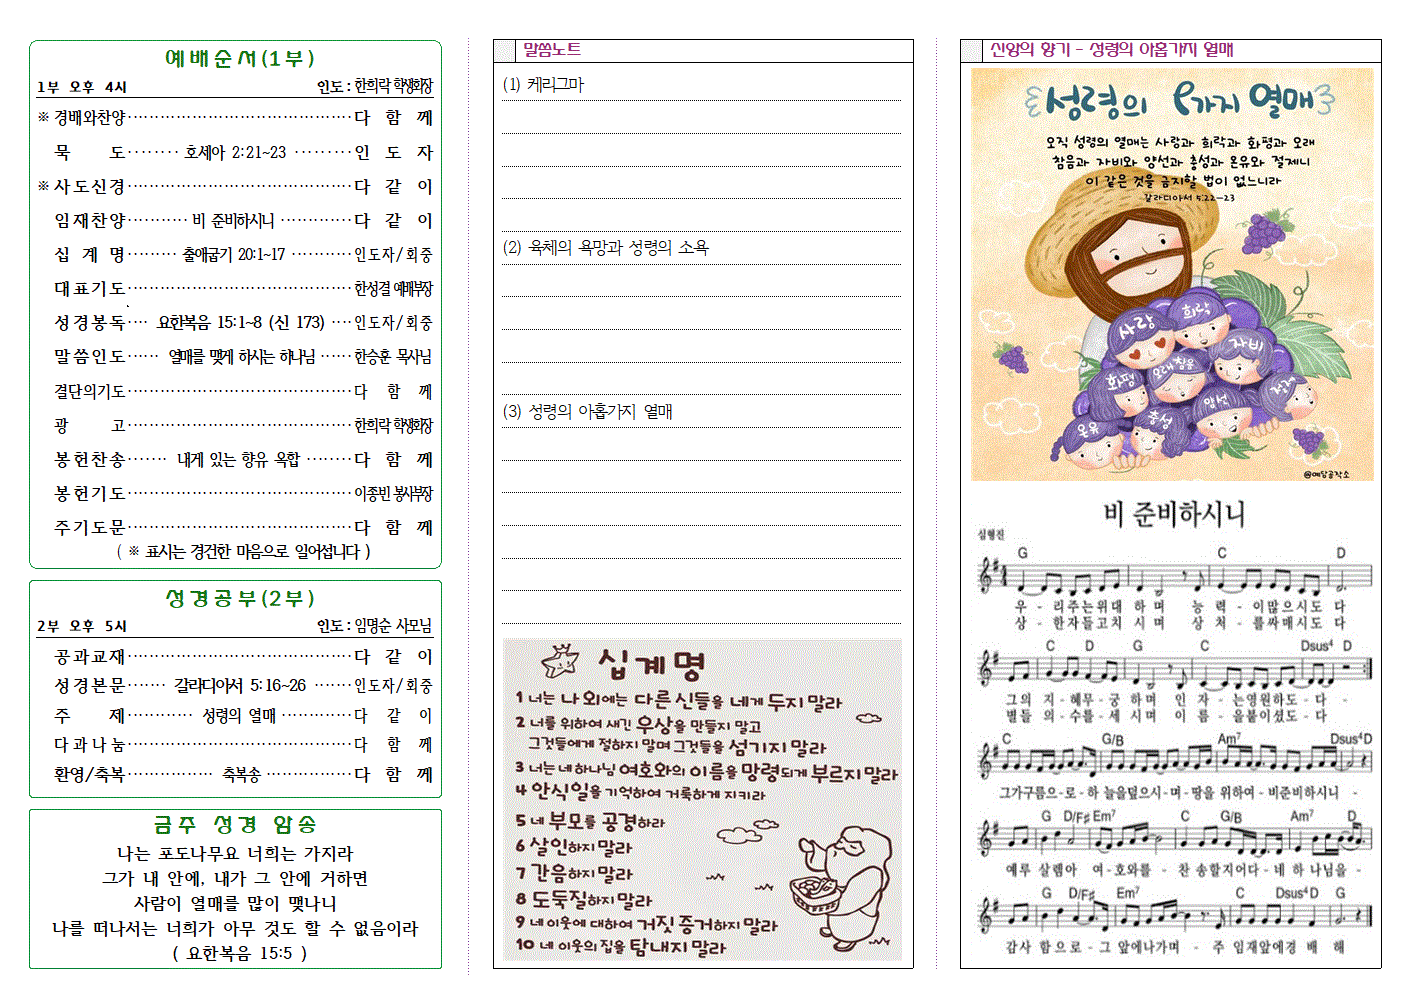 예배순서(1부)
1부 오후 4시 인도 : 한희락 학생회장
※ 경배와찬양 다 함 께
묵 도 호세아 2:21~23 인 도 자
※ 사도신경 다 같 이
임재찬양 비 준비하시니 다 같 이
십 계 명 출애굽기 20:1~17 인도자/회중
대표기도 한성결 예배부장
성경봉독 요한복음 15:1~8 (신 173) 인도자/회중
말씀인도 열매를 맺게 하시는 하나님 한승훈 목사님
결단의기도 다 함 께
광 고 한희락 학생회장
봉헌찬송 내게 있는 향유 옥합 다 함 께
봉헌기도 이종빈 봉사부장
주기도문 다 함 께
( ※ 표시는 경건한 마음으로 일어섭니다 )
성경공부(2부)
2부 오후 5시 인도 : 임명순 사모님
공과교재 다 같 이
성경본문 갈라디아서 5:16~26 인도자/회중
주 제 성령의 열매 다 같 이
다과나눔 다 함 께
환영/축복 축복송 다 함 께
금주 성경 암송
나는 포도나무요 너희는 가지라
그가 내 안에, 내가 그 안에 거하면
사람이 열매를 많이 맺나니
나를 떠나서는 너희가 아무 것도 할 수 없음이라
( 요한복음 15:5 )
말씀노트
(1) 케리그마
(2) 육체의 욕망과 성령의 소욕
(3) 성령의 아홉가지 열매
십계명
1 너는 나 외에는 다른 신들을 네게 두지 말라
2 너를 위하여 새긴 우상을 만들지 말고
그것들에게 절하지 말며 그것들을 섬기지 말라
3 너는 네 하나님 여호와의 이름을 망령되게 부르지 말라
4 안식일을 기억하여 거룩하게 지키라
5 네 부모를 공경하라
6 살인하지 말라
7 간음하지 말라
8 도둑질하지 말라
9 네 이웃에 대하여 거짓 증거하지 말라
10 네 이웃의 집을 탐내지 말라
신앙의 향기 - 성령의 아홉가지 열매
성령의 9가지 열매
오직 성령의 열매는 사랑과 희락과 화평과 오래
참음과 자비와 양선과 충성과 온유와 절제니
이 같은 것을 금지할 법이 없느니라
갈라디아서 5:22-23
사랑
희락
자비
화평
오래참음
양선
충성
온유
@예담공작소
비 준비하시니
심형진
G C D
우 - 리주는위대 하며 능 력 - 이많으시도 다
상 - 한자들고치 시며 상 처 - 를싸매시도 다
C D G C Dsus4 D
그의 지 - 혜무 - 궁 하며 인 자 - 는영원하도 - 다 -
별들 의 - 수를 - 세 시며 이 름 - 을붙이셨도 - 다
C G/B Am7 Dsus4 D
그가구름으 - 로 - 하 늘을덮으시 - 며 - 땅을 위하여 - 비준비하시니 -
G D/F# Em7 C G/B Am7 D
예루 살렘아 여 - 호와를 - 찬 송할지어다 - 네 하 나님을 -
G D/F# Em7 C Dsus4 D G
감사 함으로 - 그 앞에나가며 - 주 임재앞에경 배 해